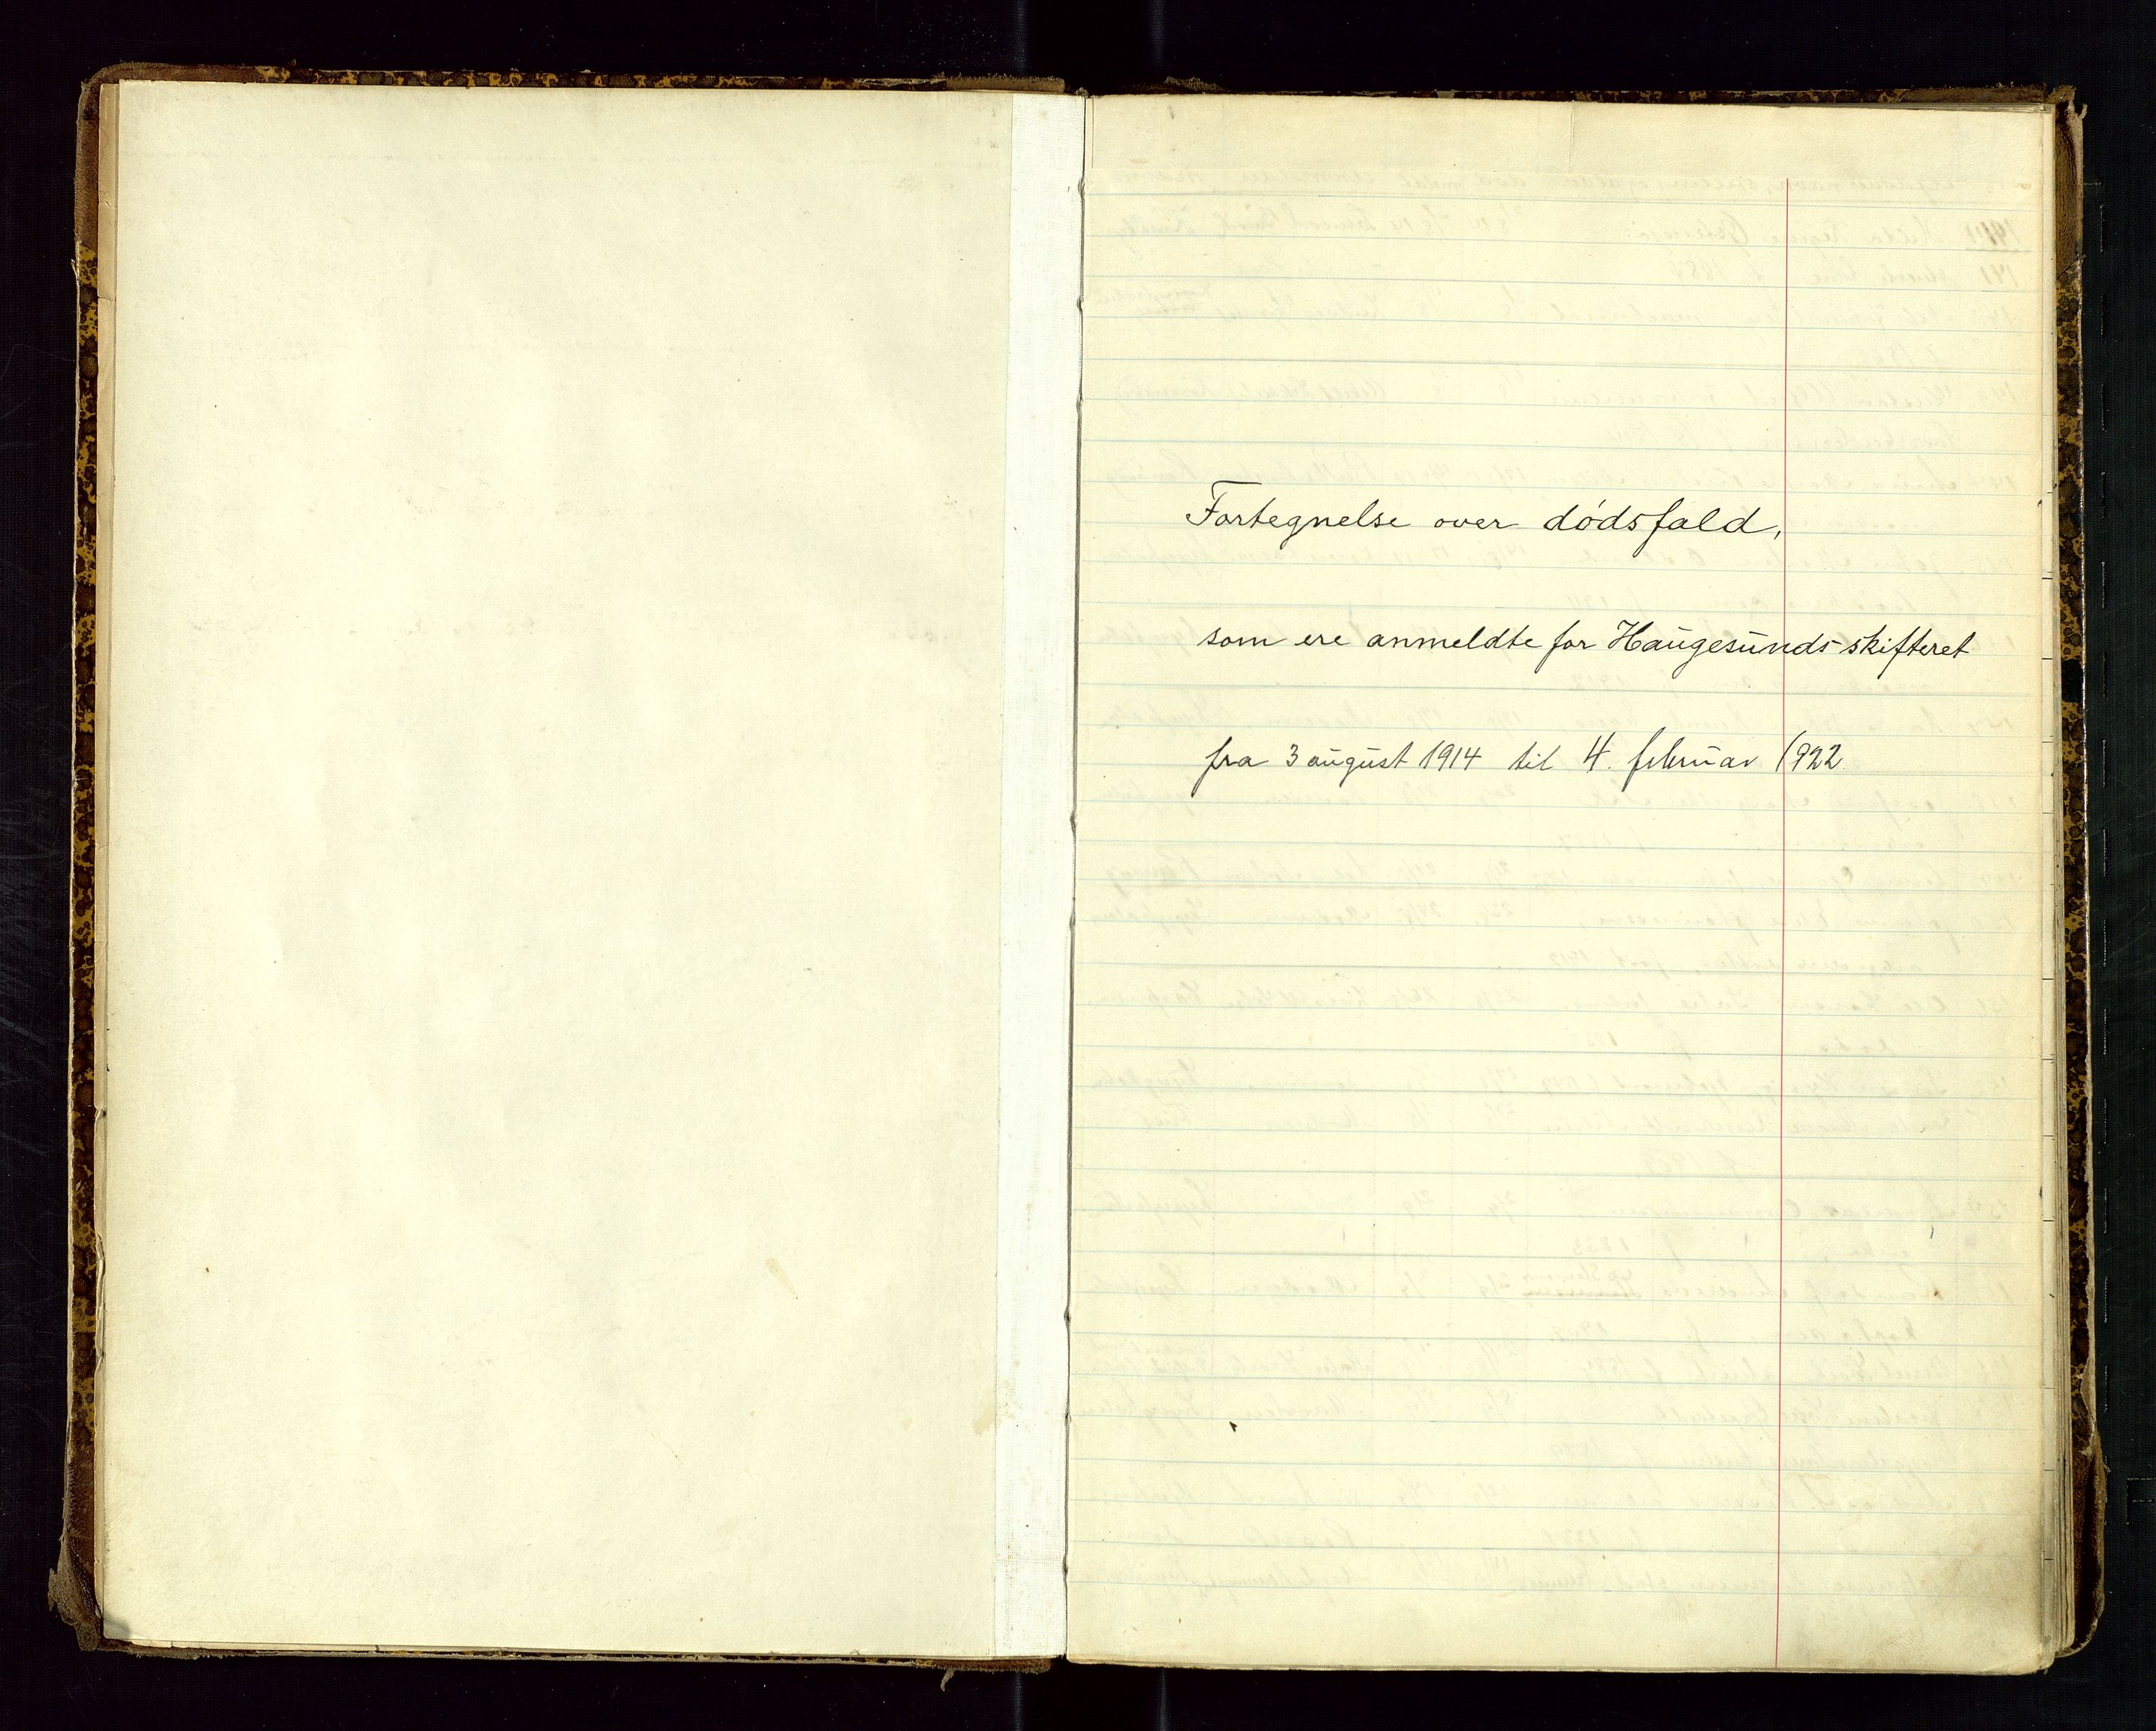 Fortegnelse over dødsfald,
som ere anmeldte for Haugesunds skifteret
fra 3 august 1914 til 4. februar 1922